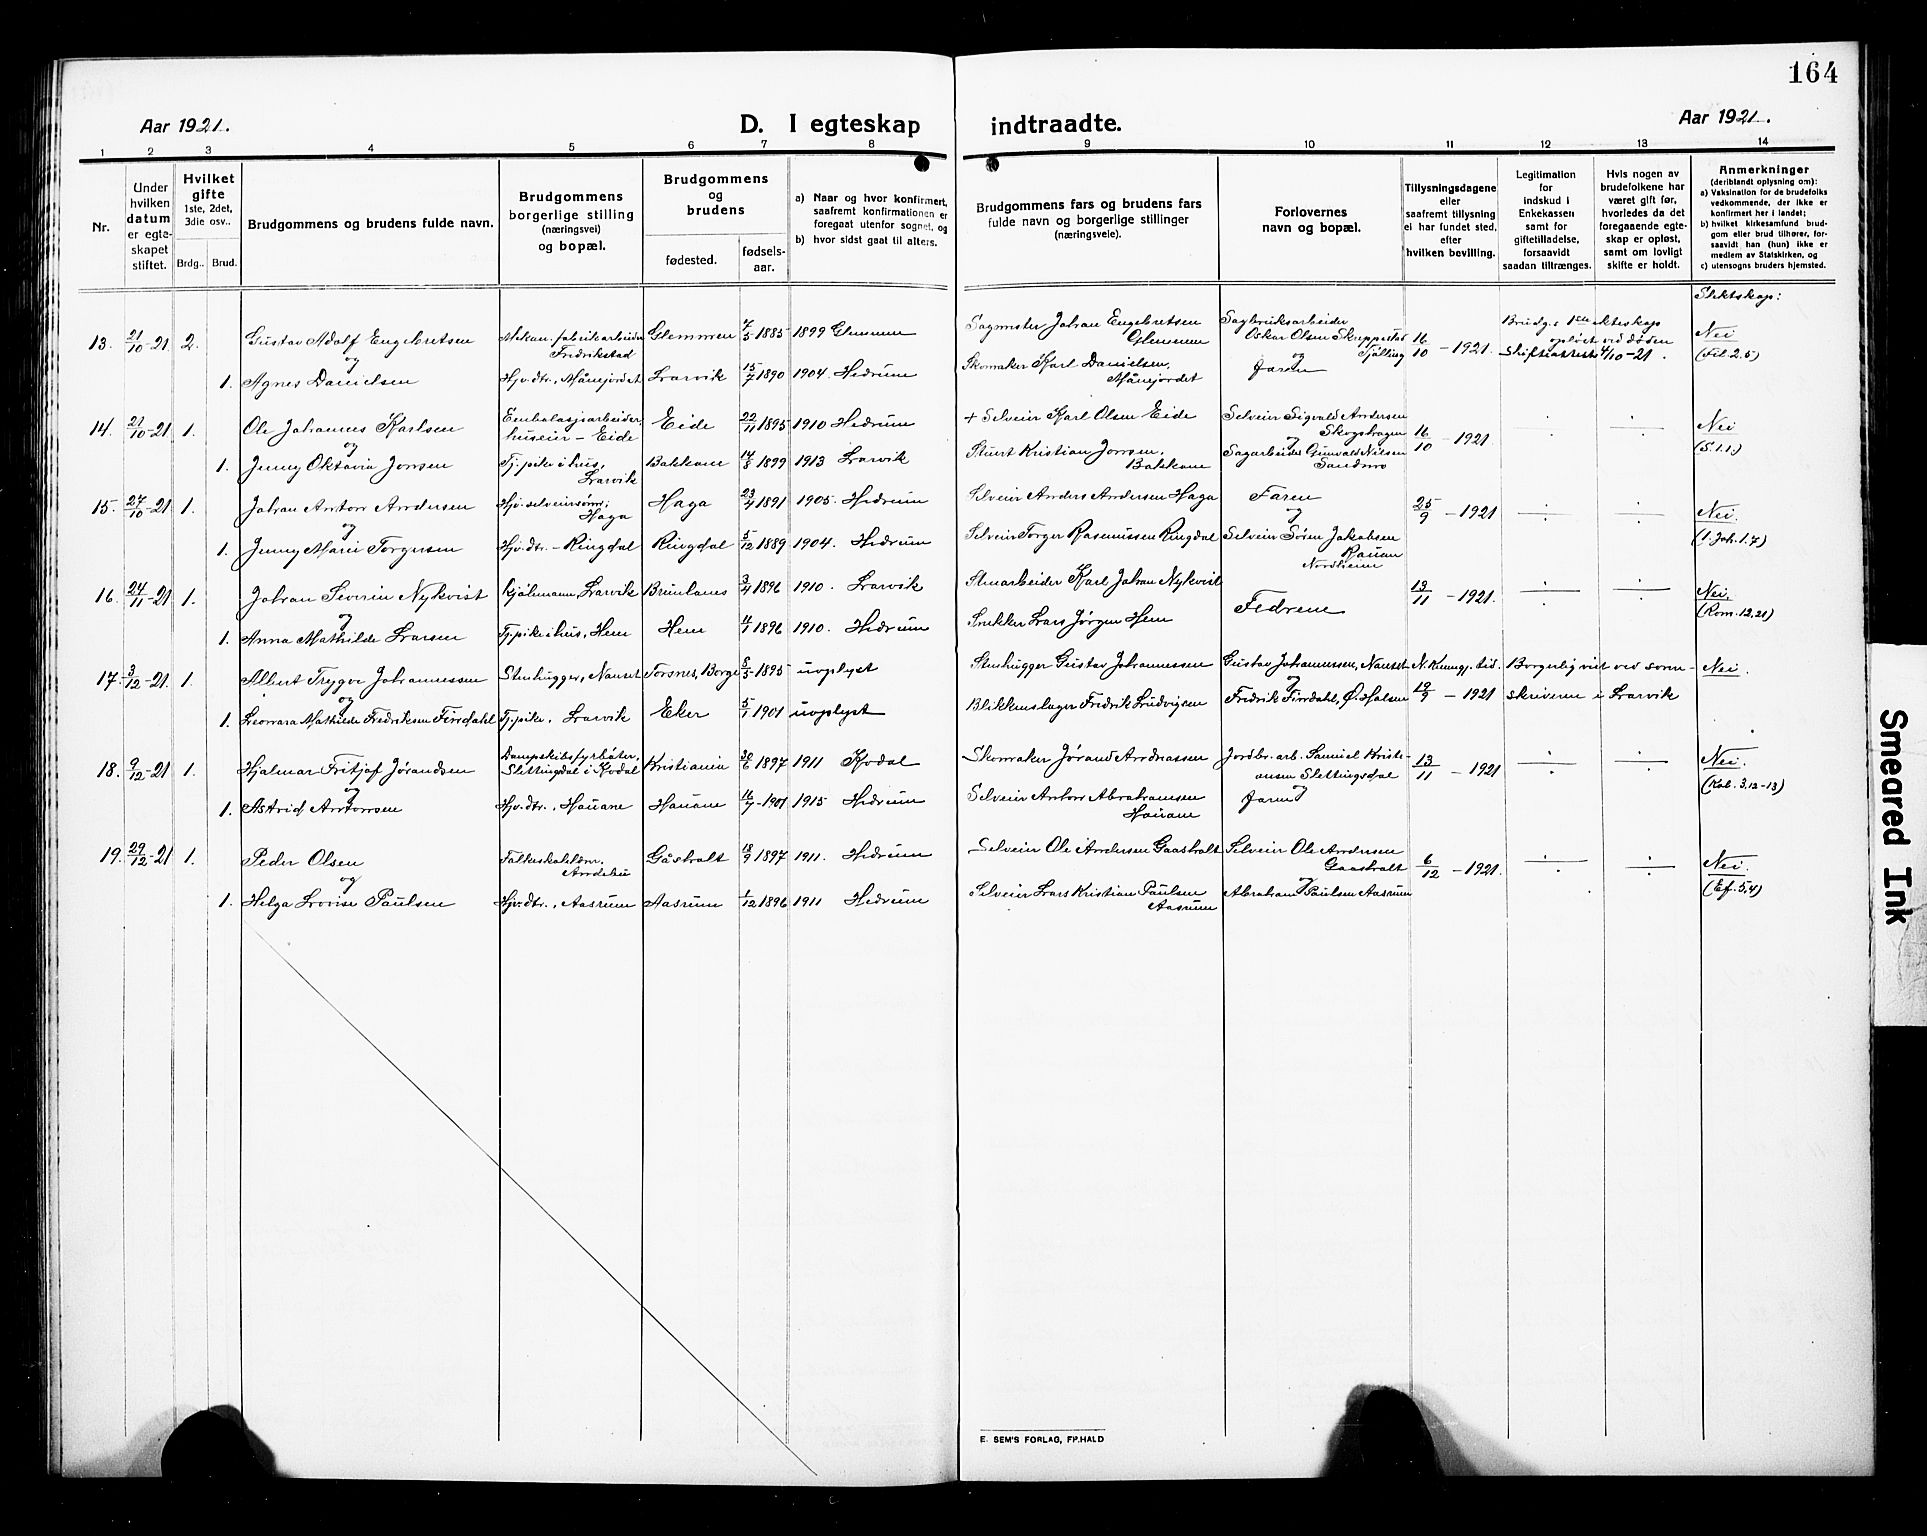 164
Aar 1921.
D. I egteskap indtraadte.
Aar 1921.
1 2 3 4 5 6 7 8 9 10 11 12 13 14
Nr.
Under hvilken datum er egteskapet stiftet.
Hvilket gifte 1ste, 2det, 3die osv..
Brdg.. Brud.
Brudgommens og brudens fulde navn.
Brudgommens borgerlige stilling (næringsvei) og bopæl.
Brudgommens og brudens
fødested.
fødselsaar.
a) Naar og hvor konfirmert, saafremt konfirmationen er foregaat utenfor sognet, og
b) hvor sidst gaat til alters.
Brudgommens fars og brudens fars fulde navn og borgerlige stillinger (næringsveie).
Forlovernes navn og bopæl.
Tillysningsdagene eller saafremt tillysning ei har fundet sted, efter hvilken bevilling.
Legitimation for indskud i Enkekassen samt for giftetilladelse, forsaavidt saadan tiltrænges.
Hvis nogen av brudefolkene har været gift før, hvorledes da det foregaaende egteskap er opløst, samt om lovligt skifte er holdt.
Anmerkninger (deriblandt oplysning om):
a) Vaksination for de brudefolks vedkommende, der ikke er konfirmert her i landet;
b) hvilket kirkesamfund brudgom eller brud tilhører, forsaavidt han (hun) ikke er medlem av Statskirken, og
c) utensogns bruders hjemsted.
Slektskap:
13. 21/10-21 2. Gustav Adolf Engebretsen Mekan. fabrikarbeider Fredrikstad Glemmen 7/5 1885 1899 Glemmen Sagmester Johan Engebretsen Glemmen Sagbruksarbeider Oskar Olsen Skreppestad Tjølling 16/10 - 1921. Brudg.s 1ste ekteskap opløst ved døden skifteattest 4/10-21. Nei
og og (Fil. 2.5)
1. Agnes Danielsen Hjv. dtr., Månejordet Larvik 15/7 1890 1904. Hedrum Skomaker Karl Danielsen, Månejordet Faren
14. 21/10-21 1. Ole Johannes Karlsen Embalasjearbeider, huseier - Eide Eide 22/11 1895 1910 Hedrum + Selveier Karl Olsen Eide Selveier Sigvald Andersen Skogshagen 16/10 - 1921. Nei
og og (S. 1.1.)
1. Jenny Oktavia Jonsen Tj. pike i hus, Larvik Bakkane 14/8 1899 1913 Larvik Stuert Kristian Jonsen, Bakkane Sagarbeider Gunvald Nilsen Sandnes
15. 27/10-21 1. Johan Anton Andersen Hjv. selveiersønn, Haga Haga 23/4 1891 1905. Hedrum Selveier Anders Andersen Haga Faren 25/9 - 1921 Nei.
og og (1. Joh. 1.7)
1. Jenny Marie Torgersen Hjv. dtr. - Ringdal Ringdal 5/12 1889 1904. Hedrum Selveier Torger Rasmussen Ringdal Selveier Søren Jakobsen Rauan Nordheim
16. 24/11-21 1. Johan Severin Nykvist Kjølmann Larvik Brunlanes 3/4 1896 1910. Larvik Stenarbeider Karl Johan Nykvist Fedrene 13/11 - 1921. Nei.
og (Rom. 12.21)
1. Anna Mathilde Larsen Tj. pike i hus, Hem Hem 4/1 1896 1910. Hedrum Snekker Lars Jørgen Hem
17. 3/12-21 1. Albert Trygve Johannessen Stenhugger, Nanset Torsnes, Borge 5/5 1895 uoplyst Stenhugger Gustav Johannessen Gustav Johannessen, Nanset N. Kunngj. tid. Borgerlig viet ved sorenskriveren i Larvik Nei.
og og
1. Leonora Mathilde Fredriksen Finndahl Tj. pike, Larvik Eker 5/1 1901 uoplyst Blikkenslager Fredrik Ludvigsen Fredrik Finndahl, Ø. Halsen 19/9 - 1921
18. 9/12-21 1. Hjalmar Fritjof Jørandsen Dampskibsfyrbøter, Slettingdal i Kodal Kristiania 30/6 1897 1911 Kodal Skomaker Jørand Andreassen Jordbr. arb. Samuel Kristiansen Slettingsdal 13/11 - 1921 Nei.
og og (Kol. 3.12-13)
1. Astrid Antonsen Hjv. dtr., Hauane Hauane 16/7 - 1901 1915 Hedrum Selveier Anton Abrahamsen Hauane Faren
19. 29/12-21 1. Peder Olsen Folkeskolelærer Andebu Gåsholt 18/9 1897 1911. Hedrum Selveier Ole Andersen Gaasholt Selveier Ole Andersen Gaasholt 6/12 - 1921. Nei.
og og (Ef. 5,4)
1. Helga Lovise Paulsen Hjv. dtr., Aasrum Aasrum 1/12 1896 1911 Hedrum Selveier Lars Kristian Paulsen Aasrum Abraham Paulsen Aasrum
E. SEM'S FORLAG, FR.HALD
Smeared Ink